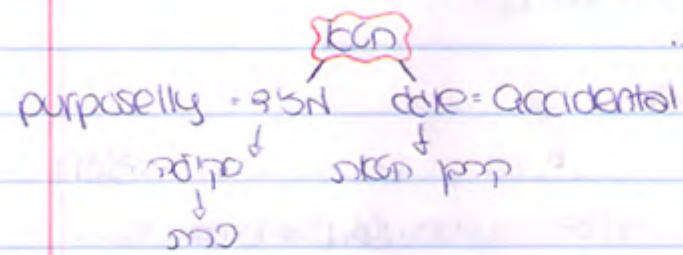 חטא
purposelly = מזיד שוגג = accidental
סקילה קרבן חטאת
כרת